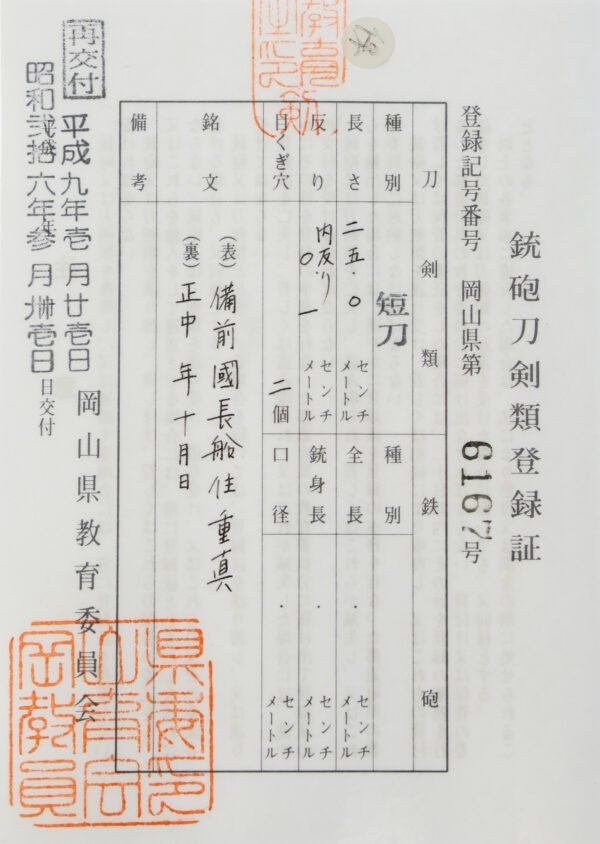 銃砲刀剣類登録証
登録記号番号 岡山県第 6167 号
刀剣類 鉄砲
種別 短刀 種別
長さ 二五・〇 センチメートル 全長 ・ センチメートル
反り 内反り 〇・一 センチメートル 銃身長 ・ センチメートル
目くぎ穴 二個 口径 ・ センチメートル
銘文 (表) 備前國長船住重真
(裏) 正中 年十月日
備考
岡山県教育委員会
再交付 平成九年壱月廿壱日
昭和弐拾六年参月卅壱日 日交付
岡山県教育委員会印